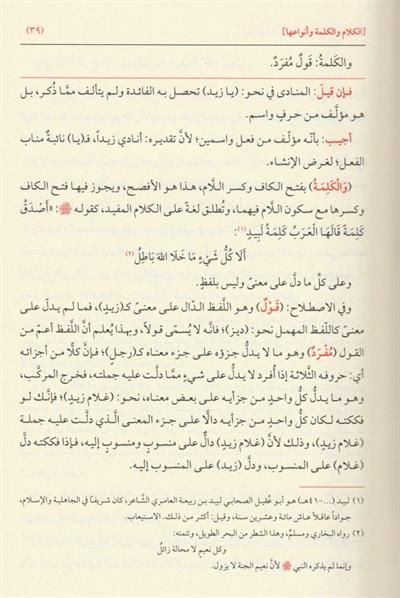 [الكلام والكلمة وأنواعها] (٣٩)
والكَلمةُ: قَولٌ مُفرَدٌ.
فـإن قيـلَ: المنادى في نحو: (يا زيد) تحصل به الفائدة ولم يتألف ممَّا ذُكر، بل
هو مؤلَّف من حرفٍ واسم.
أجيب: بأنَّه مؤلَّف من فعل واسمين؛ لأنَّ تقديره: أنادي زيداً، فـ(يا) نائبةٌ مناب
الفعل؛ لغرض الإنشاء.
(وَالْكَلِمَةُ) بفتح الكاف وكسر اللَّام، هذا هو الأفصح، ويجوز فيها فتح الكاف
وكسرها مع سكون اللَّام فيهما، وتُطلق لغةً على الكلام المفيد، كقوله ﷺ: «أَصْدَقُ
كَلِمَةٍ قَالَهَا الْعَرَبُ كَلِمَةُ لَبِيدٍ(١):
أَلَا كُلُّ شَيْءٍ مَا خَلَا اللهَ بَاطِلُ(٢)
وعلى كلِّ ما دلَّ على معنىً وليس بلفظٍ.
وفي الاصطلاح: (قَوْلٌ) وهو اللَّفظ الدَّال على معنىً كـ(زيدٍ)، فما لم يدلَّ على
معنىً كاللَّفظ المهمل نحو: (ديز)؛ فإنَّه لا يُسمَّى قولاً، وبهذا يُعلم أنَّ اللَّفظ أعمّ من
القول (مُفْرَدٌ) وهو ما لا يدلُّ جزؤه على جزء معناه كـ(رجلٍ)؛ فإنَّ كلًّا من أجزائه
أي: حروفه الثَّلاثة إذا أُفرد لا يدلُّ على شيءٍ ممَّا دلَّت عليه جملته، فخرج المركَّب،
وهو ما يدلُّ كلُّ واحدٍ من جزأيه على بعض معناه، نحو: (غلام زيدٍ)؛ فإنَّك لو
فككته لكان كلُّ واحدٍ من جزأيه دالًّا على جزء المعنى الَّذي دلَّت عليه جملة
(غلام زيدٍ)، وذلك لأنَّ (غلام زيدٍ) دالٌّ على منسوبٍ ومنسوبٍ إليه، فإذا فككته دلَّ
(غلام) على المنسوب، ودلَّ (زيد) على المنسوب إليه.
(١) لبيد (...-٤١هـ) هو أبو عُقيل الصحابي لبيد بن ربيعة العامري الشَّاعر، كان شريفاً في الجاهلية والإسلام،
جواداً عاقلاً عاش مائة وعشرين سنة، وقيل: أكثر من ذلك. الاستيعاب.
(٢) رواه البخاري ومسلم، وهذا الشطر من البحر الطويل، وتتمته:
وكل نعيم لا محالة زائلُ
وإنما لم يذكره النبي ﷺ لأنَّ نعيم الجنة لا يزول.